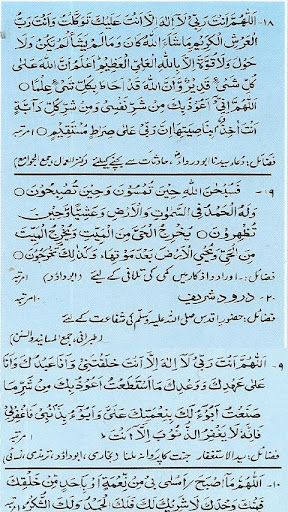 ۱۸- اَللّٰهُمَّ اَنْتَ رَبِّیْ لَآ اِلٰهَ اِلَّآ اَنْتَ عَلَیْكَ تَوَكَّلْتُ وَاَنْتَ رَبُّ
الْعَرْشِ الْكَرِیْمِ مَاشَآءَ اللّٰهُ كَانَ وَمَا لَمْ یَشَأْ لَمْ یَكُنْ وَلَا
حَوْلَ وَلَا قُوَّةَ اِلَّا بِاللّٰهِ الْعَلِیِّ الْعَظِیْمِ اَعْلَمُ اَنَّ اللّٰهَ عَلٰی
كُلِّ شَیْءٍ قَدِیْرٌ وَّاَنَّ اللّٰهَ قَدْ اَحَاطَ بِكُلِّ شَیْءٍ عِلْمًا ○
اَللّٰهُمَّ اِنِّیْ اَعُوْذُ بِكَ مِنْ شَرِّ نَفْسِیْ وَمِنْ شَرِّ كُلِّ دَآبَّةٍ
اَنْتَ اٰخِذٌۢ بِنَاصِیَتِهَا اِنَّ رَبِّیْ عَلٰی صِرَاطٍ مُّسْتَقِیْمٍ ○ ۱مرتبہ
فضائل: دعاء سیدنا ابودرداءؓ، حادثات سے بچنے کیلئے (کنزالعمال، جمع الجوامع)
۱۹- فَسُبْحٰنَ اللّٰهِ حِیْنَ تُمْسُوْنَ وَحِیْنَ تُصْبِحُوْنَ ○
وَلَهُ الْحَمْدُ فِی السَّمٰوٰتِ وَالْاَرْضِ وَعَشِیًّا وَّحِیْنَ
تُظْهِرُوْنَ ○ یُخْرِجُ الْحَیَّ مِنَ الْمَیِّتِ وَیُخْرِجُ الْمَیِّتَ
مِنَ الْحَیِّ وَیُحْیِ الْاَرْضَ بَعْدَ مَوْتِهَا ؕ وَكَذٰلِكَ تُخْرَجُوْنَ ○
فضائل: اوراد و اذکار میں کمی کی تلافی کے لیئے (ابوداؤد) ۱مرتبہ
۲۰- درود شریف ۱۰مرتبہ
فضائل: حضور اقدس صلی اللہ علیہ وسلم کی شفاعت کے لئے
(طبرانی، جمع المسانید والسنن)
۹- اَللّٰهُمَّ اَنْتَ رَبِّیْ لَآ اِلٰهَ اِلَّآ اَنْتَ خَلَقْتَنِیْ وَاَنَا عَبْدُكَ وَاَنَا
عَلٰی عَهْدِكَ وَوَعْدِكَ مَا اسْتَطَعْتُ اَعُوْذُ بِكَ مِنْ شَرِّ مَا
صَنَعْتُ اَبُوْٓءُ لَكَ بِنِعْمَتِكَ عَلَیَّ وَاَبُوْٓءُ بِذَنْۢبِیْ فَاغْفِرْلِیْ
فَاِنَّهٗ لَا یَغْفِرُ الذُّنُوْبَ اِلَّآ اَنْتَ ○ ۱مرتبہ
فضائل: سیدالاستغفار، جنت کا پروانہ ملنا (بخاری، ابوداؤد، ترمذی، نسائی)
۱۰- اَللّٰهُمَّ مَآ اَصْبَحَ / اَمْسٰی بِیْ مِنْ نِّعْمَةٍ اَوْ بِاَحَدٍ مِّنْ خَلْقِكَ
فَمِنْكَ وَحْدَكَ لَا شَرِیْكَ لَكَ فَلَكَ الْحَمْدُ وَلَكَ الشُّكْرُ ○